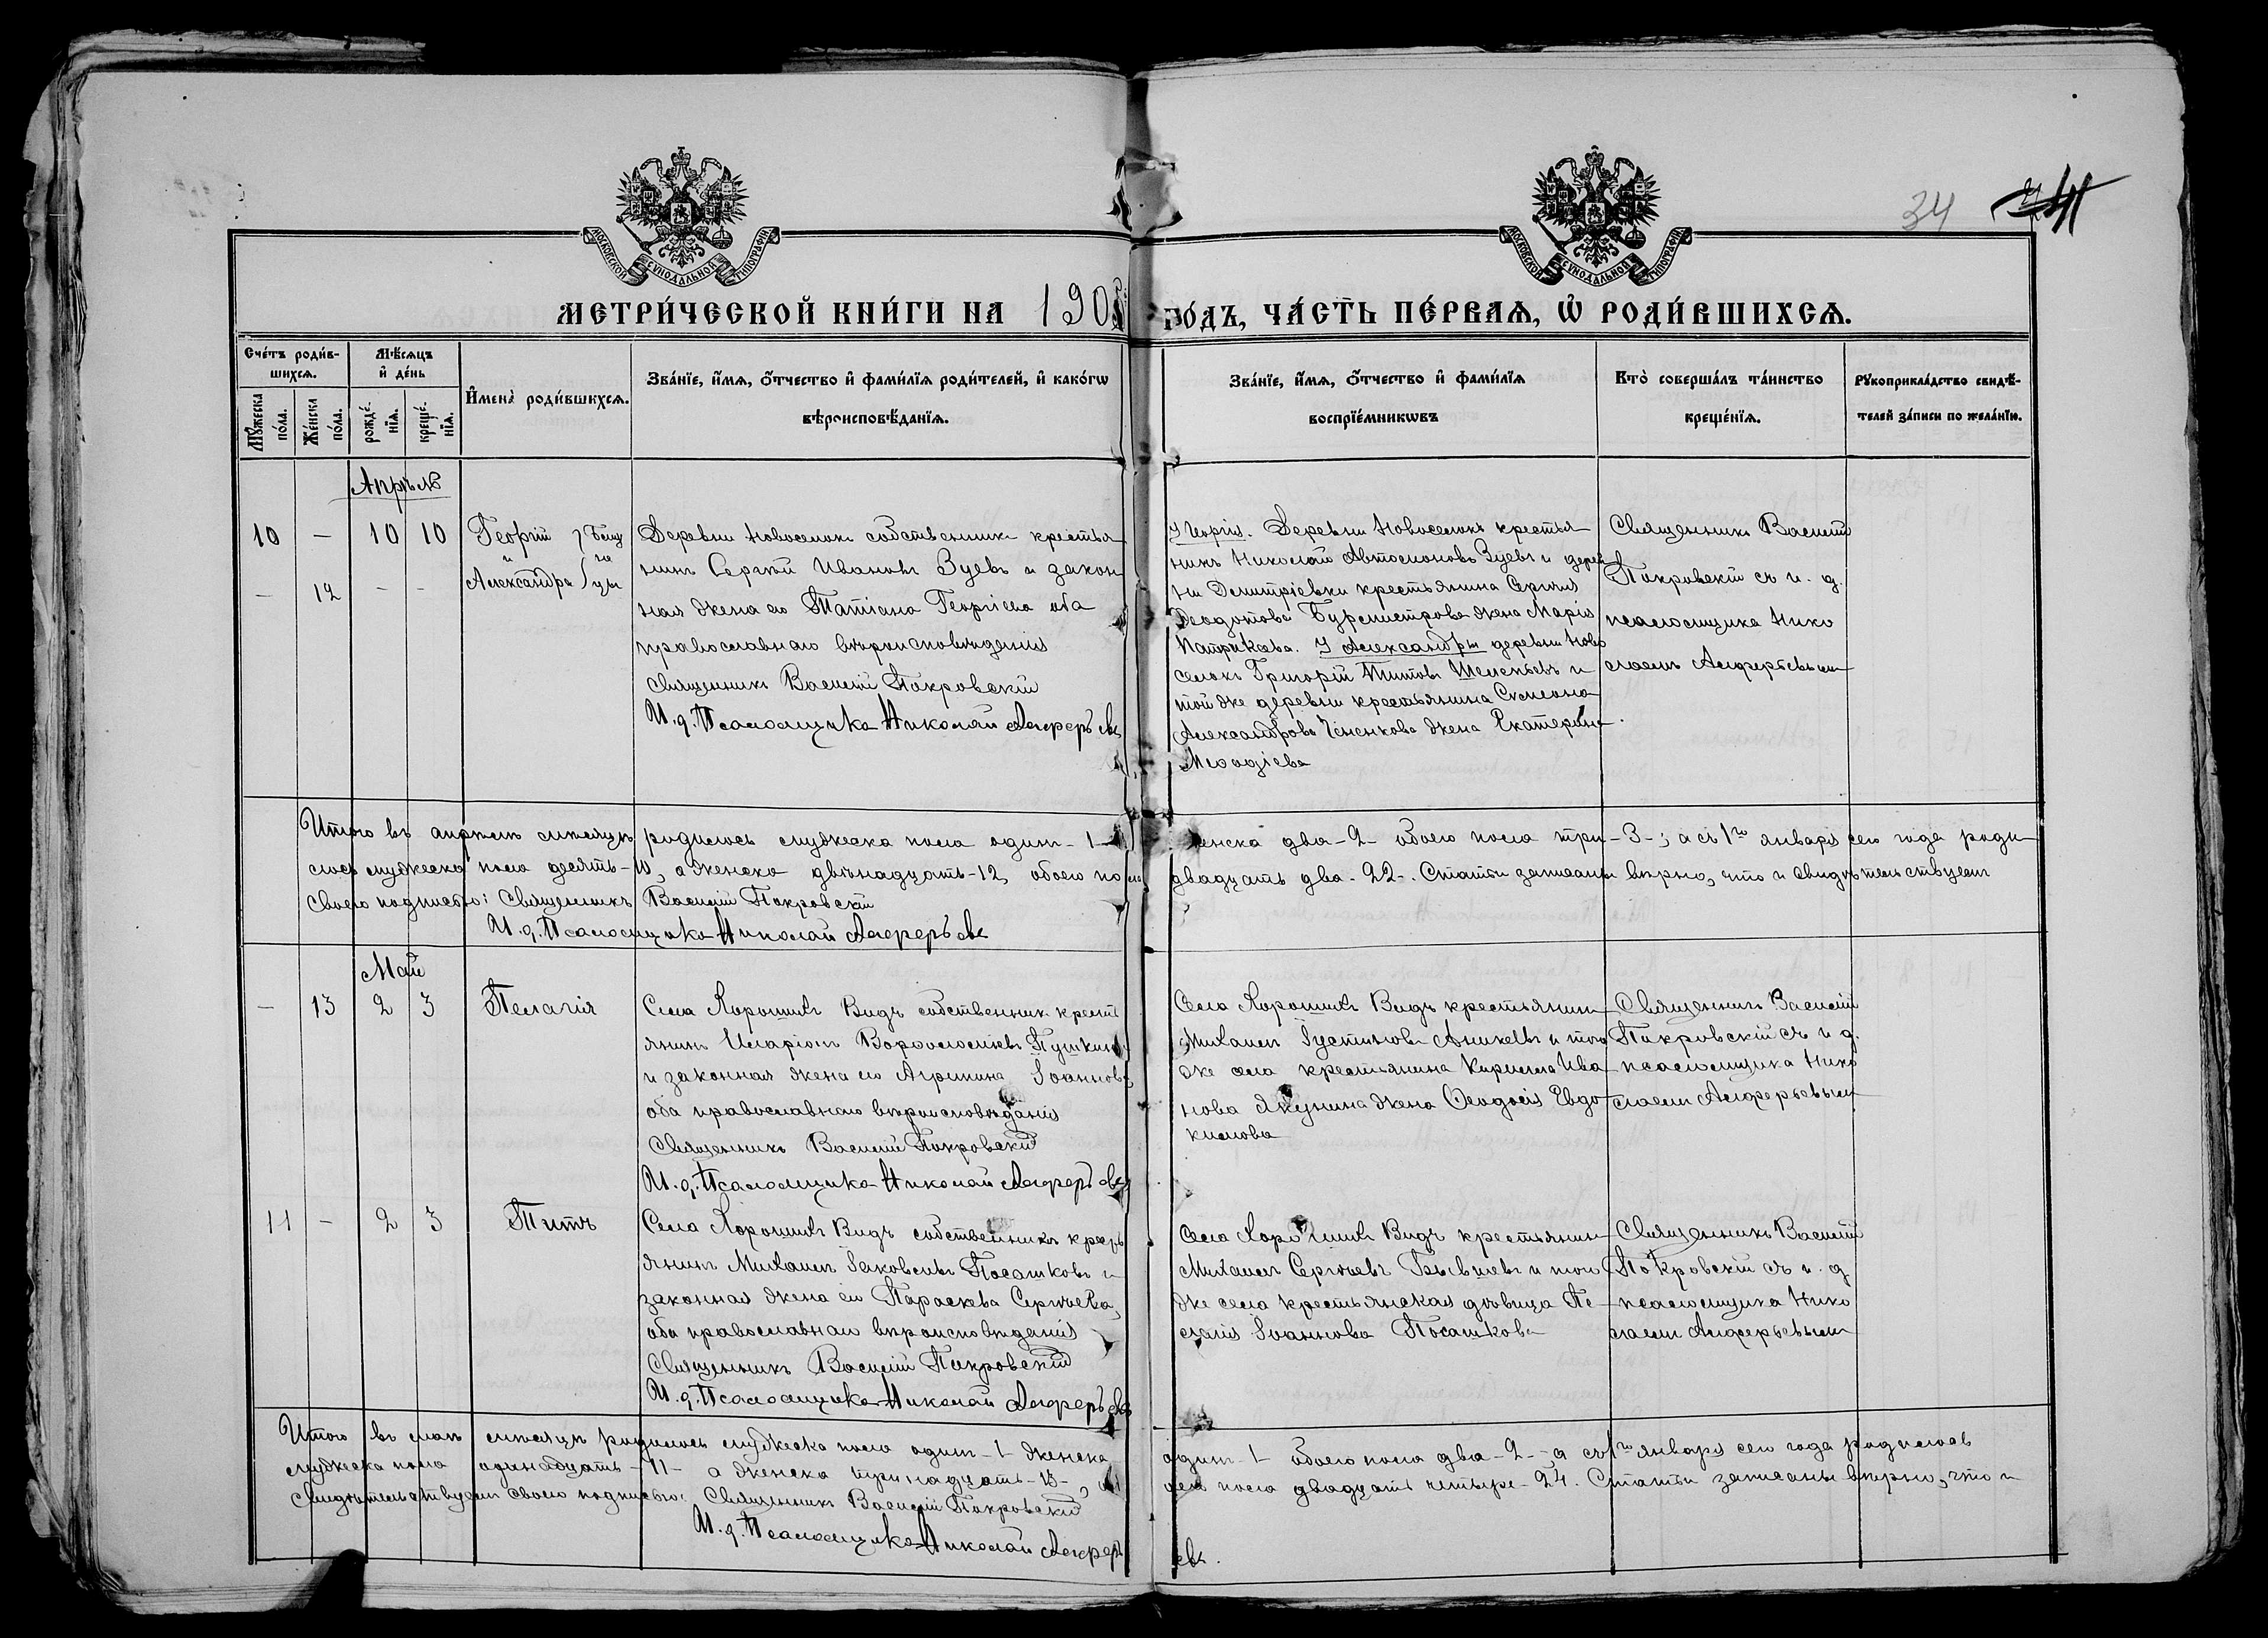 34
МОСКОВСКОЙ СѴНОДАЛЬНОЙ ТИПОГРАФІИ
МОСКОВСКОЙ СѴНОДАЛЬНОЙ ТИПОГРАФІИ
МЕТРИ́ЧЕСКОЙ КНИ́ГИ НА 190 ГО́ДЪ, ЧА́СТЬ ПЕ́РВАѦ, Ѡ҆ РОДИ́ВШИХСѦ.
Сче́тъ роди́в-
шихсѧ.
Мѣ́сѧцъ
и҆ де́нь
Мꙋ́жеска
по́ла.
Же́нска
по́ла.
рожде́-
нїѧ.
креще́-
нїѧ.
И҆мена̀ роди́вшихсѧ.
Зва́нїе, и҆́мѧ, ѻ҆́тчество и҆ фами́лїѧ роди́телей, и҆ како́гѡ
вѣроисповѣ́данїѧ.
Зва́нїе, и҆́мѧ, ѻ҆́тчество и҆ фами́лїѧ
воспрїе́мникѡвъ
Кто̀ соверша́лъ та́инство
креще́нїѧ.
Рꙋкоприкла́дство свидѣ́-
телей за́писи по жела́нїю.
Апрѣль
10 — 10 10 Георгій
и
— 12 - - Александра
Деревни Новоселокъ собственникъ крестья
нинъ Сергѣй Ивановъ Зуевъ и закон
ная жена его Татіана Георгіева оба
православнаго вѣроисповѣданія
Священникъ Василій Покровскій
И. д. Псаломщика Николай Алферьевъ
У Георгія. Деревни Новоселокъ крестья
нинъ Николай Автономовъ Зуевъ и дерев
ни Димитріевки крестьянина Сергія
Ѳеодотова Бурмистрова жена Марія
Патрикѣева. У Александры деревни Ново
селокъ Григорій Титовъ и
той же деревни крестьянина Симеона
Александрова жена Екатерина
Меѳодіева
Священникъ Василій
Покровскій съ и. д.
псаломщика Нико
лаемъ Алферьевымъ
Итого въ апрѣлѣ мѣсяцѣ родилось мужеска пола одинъ - 1 - женска два - 2 - обоего пола три - 3 -; а съ 1го января сего года роди
лось мужеска пола десять - 10, а женска двѣнадцать - 12, обоего пола двадцать два - 22 -. Статьи записаны вѣрно, что и свидѣтельствуемъ
своею подписью: Священникъ Василій Покровскій
И. д. Псаломщика Николай Алферьевъ
Май
— 13 2 3 Пелагія
Села Хорошій Видъ собственникъ кресть
янинъ Иларіонъ Пушкинъ
и законная жена его Агрипина Іоаннова
оба православнаго вѣроисповѣданія
Священникъ Василій Покровскій
И. д. Псаломщика Николай Алферьевъ
Села Хорошій Видъ крестьянинъ
Михаилъ Іустиновъ Аникеевъ и того
же села крестьянина Кирилла Ива
нова Якунина жена Ѳеодосія Евдо
кимова
Священникъ Василій
Покровскій съ и. д.
псаломщика Нико
лаемъ Алферьевымъ
11 — 2 3 Титъ
Села Хорошій Видъ собственникъ кресть
янинъ Михаилъ Іаковлевъ Посашковъ и
законная жена его Параскева Сергѣева,
оба православнаго вѣроисповѣданія
Священникъ Василій Покровскій
И. д. Псаломщика Николай Алферьевъ
Села Хорошій Видъ крестьянинъ
Михаилъ Сергѣевъ и того
же села крестьянская дѣвица Пе
лагія Іоаннова Посашкова
Священникъ Василій
Покровскій съ и. д.
псаломщика Нико
лаемъ Алферьевымъ
Итого въ маѣ мѣсяцѣ родилось мужеска пола одинъ - 1 - женска одинъ - 1 - обоего пола два - 2 - а съ 1го января сего года родилось
мужеска пола одинадцать - 11 - а женска тринадцать - 13 -, обоего пола двадцать четыре - 24. Статьи записаны вѣрно, что и
свидѣтельствуемъ своею подписью: Священникъ Василій Покровскій
И. д. Псаломщика Николай Алферьевъ.